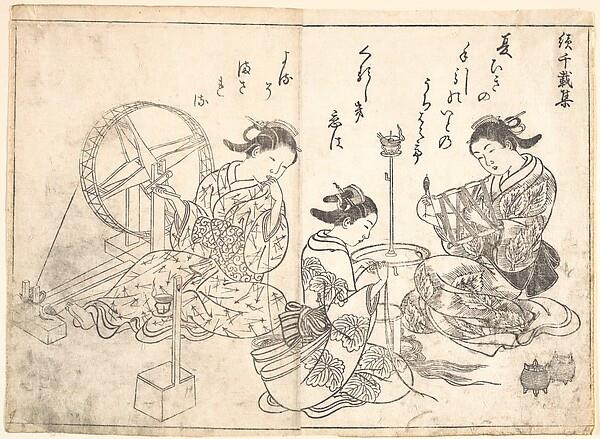 続千載集
夏ひきの
手引のいとの
うちはへて
くるしき
恋は
よるそ
まされ
る